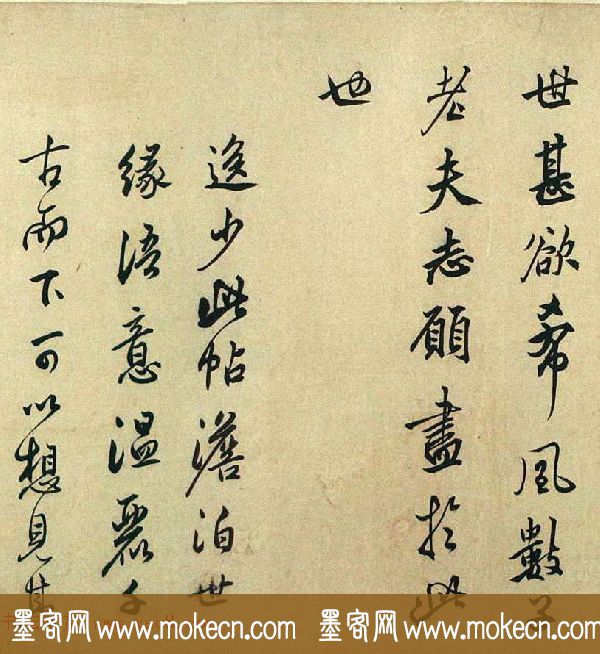 世甚欲希風數子
老夫志願盡於此
也
逸少此帖澹泊世
緣語意温麗千
古而下可以想見其
墨客网 www.mokecn.com 墨客网 www.mokecn.com